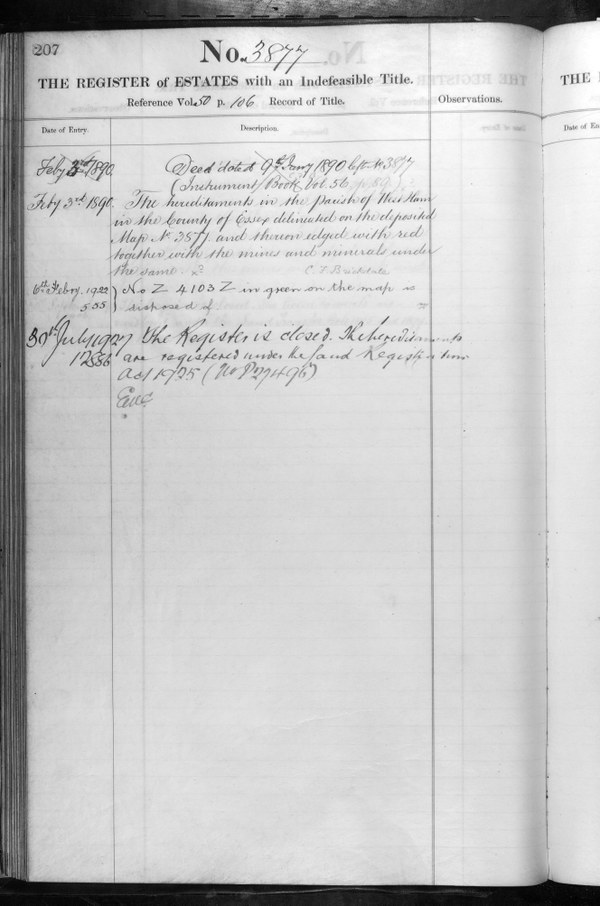 207
No. 3877
THE REGISTER of ESTATES with an Indefeasible Title.
Reference Vol. 50 p. 106 Record of Title.
Observations.
Date of Entry.
Description.
Feby 3rd 1890.
Deed dated 9th Jany 1890 left No 3877
(Instrument Book Vol. 56 p. 89)
Feby 3rd 1890.
The hereditaments in the parish of West Ham
in the County of Essex delineated on the deposited
Map No 3877 and thereon edged with red
together with the mines and minerals under
the same.
C. F. Brickdale
6th Febry. 1922
555
No Z 4103 Z in green on the map is
disposed of
30th July 1927
12886
The Register is closed. The hereditaments
are registered under the Land Registration
Act 1925 (No P27496)
THE
Date of En